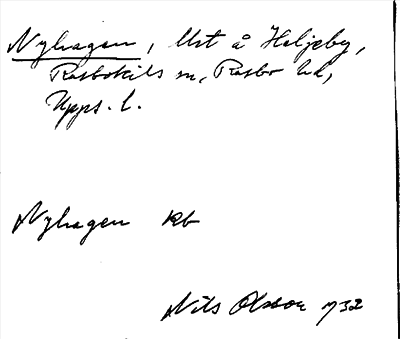 Nyhagen, Ust å Heljeby,
Rasbokils sn, Rasbo hd,
Upps. l.
Nyhagen kb
Nils Olsson 1732